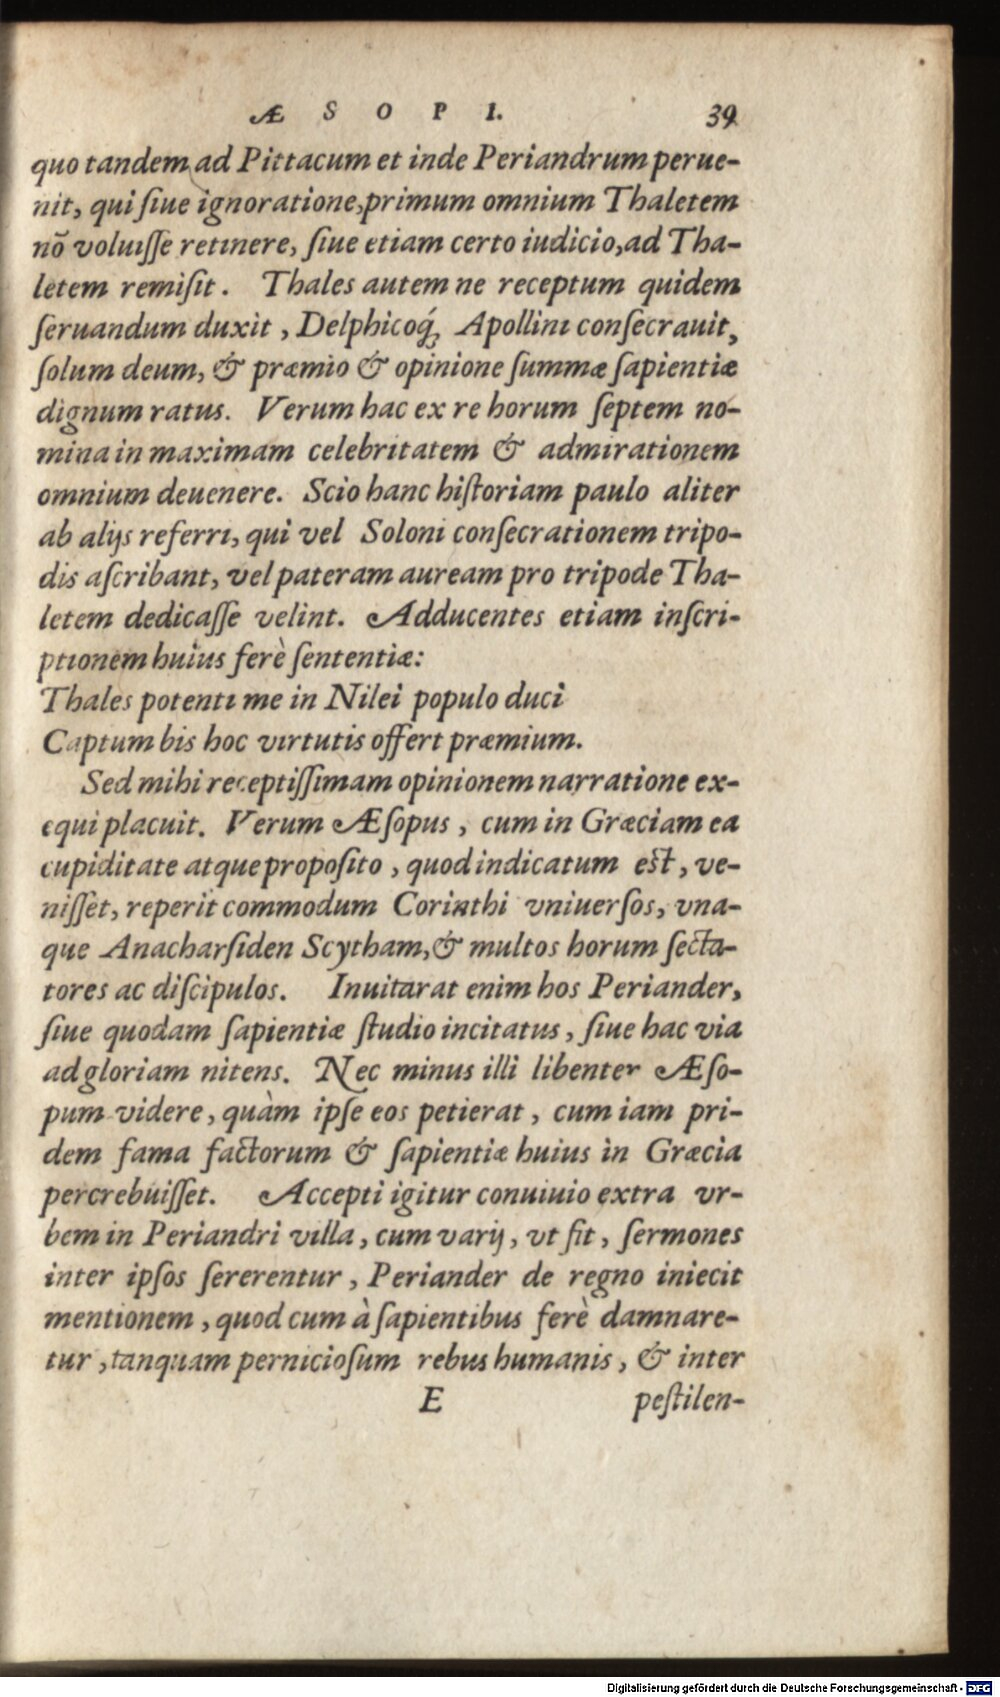 ÆSOPI. 39
quo tandem ad Pittacum et inde Periandrum perue-
nit, qui ſiue ignoratione, primum omnium Thaletem
nō voluiſſe retinere, ſiue etiam certo iudicio, ad Tha-
letem remiſit. Thales autem ne receptum quidem
ſeruandum duxit, Delphicoq́; Apollini conſecrauit,
ſolum deum, & præmio & opinione ſummæ ſapientiæ
dignum ratus. Verum hac ex re horum ſeptem no-
mina in maximam celebritatem & admirationem
omnium deuenere. Scio hanc hiſtoriam paulo aliter
ab alijs referri, qui vel Soloni conſecrationem tripo-
dis aſcribant, vel pateram auream pro tripode Tha-
letem dedicaſſe velint. Adducentes etiam inſcri-
ptionem huius ferè ſententiæ:
Thales potenti me in Nilei populo duci
Captum bis hoc virtutis offert præmium.
Sed mihi receptiſſimam opinionem narratione ex-
equi placuit. Verum Æſopus, cum in Græciam ea
cupiditate atque propoſito, quod indicatum eſt, ve-
niſſet, reperit commodum Corinthi vniuerſos, vna-
que Anacharſiden Scytham, & multos horum ſecta-
tores ac diſcipulos. Inuitarat enim hos Periander,
ſiue quodam ſapientiæ ſtudio incitatus, ſiue hac via
ad gloriam nitens. Nec minus illi libenter Æſo-
pum videre, quàm ipſe eos petierat, cum iam pri-
dem fama factorum & ſapientiæ huius in Græcia
percrebuiſſet. Accepti igitur conuiuio extra vr-
bem in Periandri villa, cum varij, vt fit, ſermones
inter ipſos ſererentur, Periander de regno iniecit
mentionem, quod cum à ſapientibus ferè damnare-
tur, tanquam pernicioſum rebus humanis, & inter
E peſtilen-
Digitalisierung gefördert durch die Deutsche Forschungsgemeinschaft - DFG